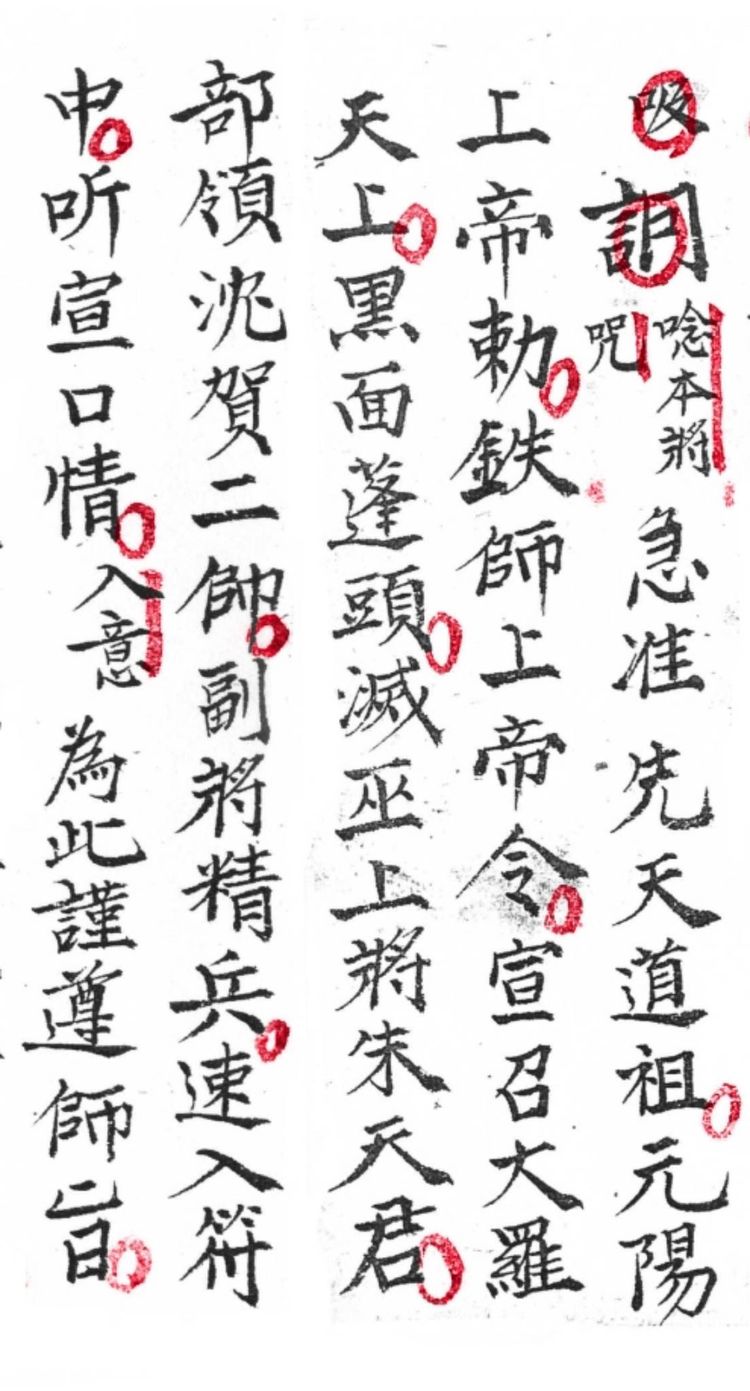 吸 唸本將咒 急准先天道祖元陽
上帝勅鉄師上帝令宣召大羅
天上黒面蓬頭滅巫上將朱天君
部領沈賀二帥副將精兵速入符
中听宣口情入意為此謹遵師旨